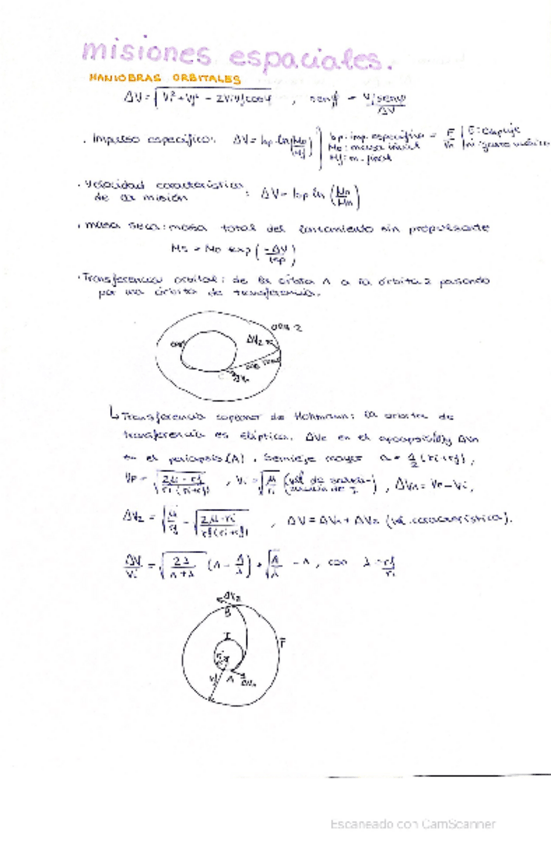 misiones espaciales.
MANIOBRAS ORBITALES
ΔV = √(Vi² + Vf² - 2ViVf cosφ) , senβ = Vf senφ / ΔV
· Impulso específico: ΔV = Isp·ln(Mo/Mf)
Isp: imp. específico = F/ṁ
Mo: masa inicial
Mf: m. final
F: Empuje
ṁ: gasto másico
· Velocidad característica
de la misión : ΔV = Isp ln (Mo/Mn)
· masa seca: masa total del lanzamiento sin propulsante
Ms = Mo exp (-ΔV/Isp)
· Transferencia orbital: de la órbita 1 a la órbita 2 pasando
por una órbita de transferencia.
orb 2
ΔV2
↳ Transferencia coplanar de Hohmann: la órbita de
transferencia es elíptica. en el y ΔV1
en el periapsis (A). Semieje mayor a = 1/2 (ri+rf),
Vp = √(2μ·rf / ri(ri+rf)) , Vi = √(μ/ri) (vel de) , ΔV1 = Vp - Vi,
ΔV2 = √(μ/rf) - √(2μ·ri / rf(ri+rf)) , ΔV = ΔV1 + ΔV2 (vel. característica).
ΔV/Vi = √(2λ/(1+λ)) (1 - 1/λ) + √(1/λ) - 1 , con λ = rf/ri
ΔV2
B
I
F
A
ΔV1
Escaneado con CamScanner